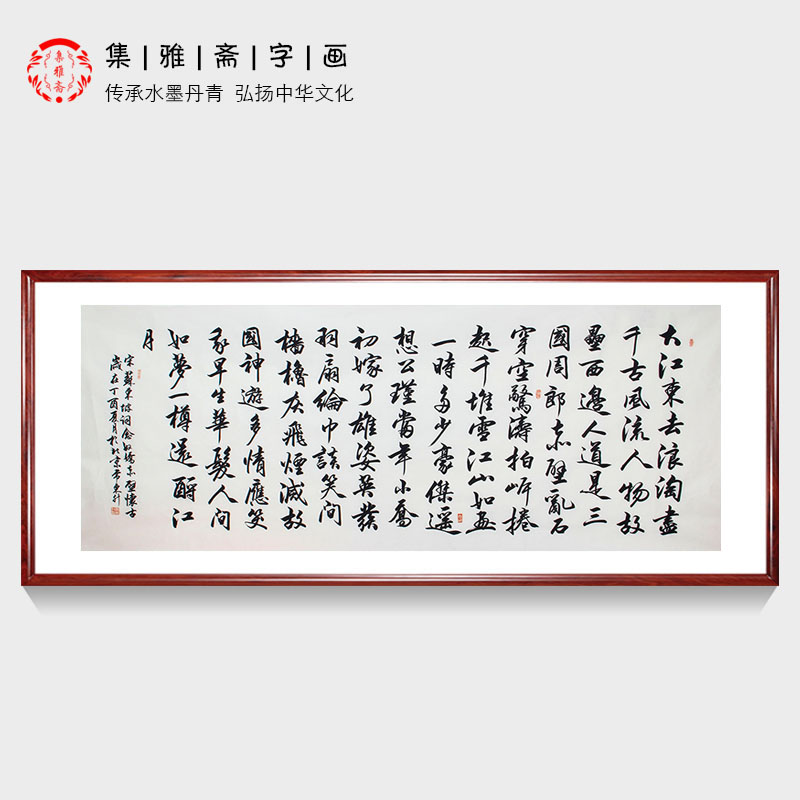 集雅斋
集|雅|斋|字|画
传承水墨丹青 弘扬中华文化
大江東去浪淘盡
千古風流人物故
壘西邊人道是三
國周郎赤壁亂石
穿空驚濤拍岸捲
起千堆雪江山如畫
一時多少豪傑遥
想公瑾當年小喬
初嫁了雄姿英發
羽扇綸巾談笑間
檣櫓灰飛煙滅故
國神遊多情應笑
我早生華髮人间
如夢一樽還酹江
月
宋蘇東坡詞念奴嬌赤壁懷古
歲在丁酉夏月於北京